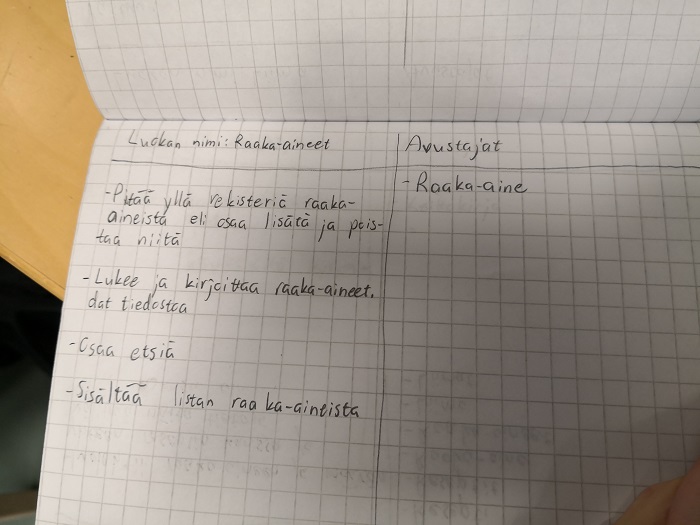 Luokan nimi: Raaka-aineet
Avustajat
-Pitää yllä rekisteriä raaka-
aineista eli osaa lisätä ja pois-
taa niitä
-Lukee ja kirjoittaa raaka-aineet.
dat tiedostoa
-Osaa etsiä
-Sisältää listan raaka-aineista
-Raaka-aine